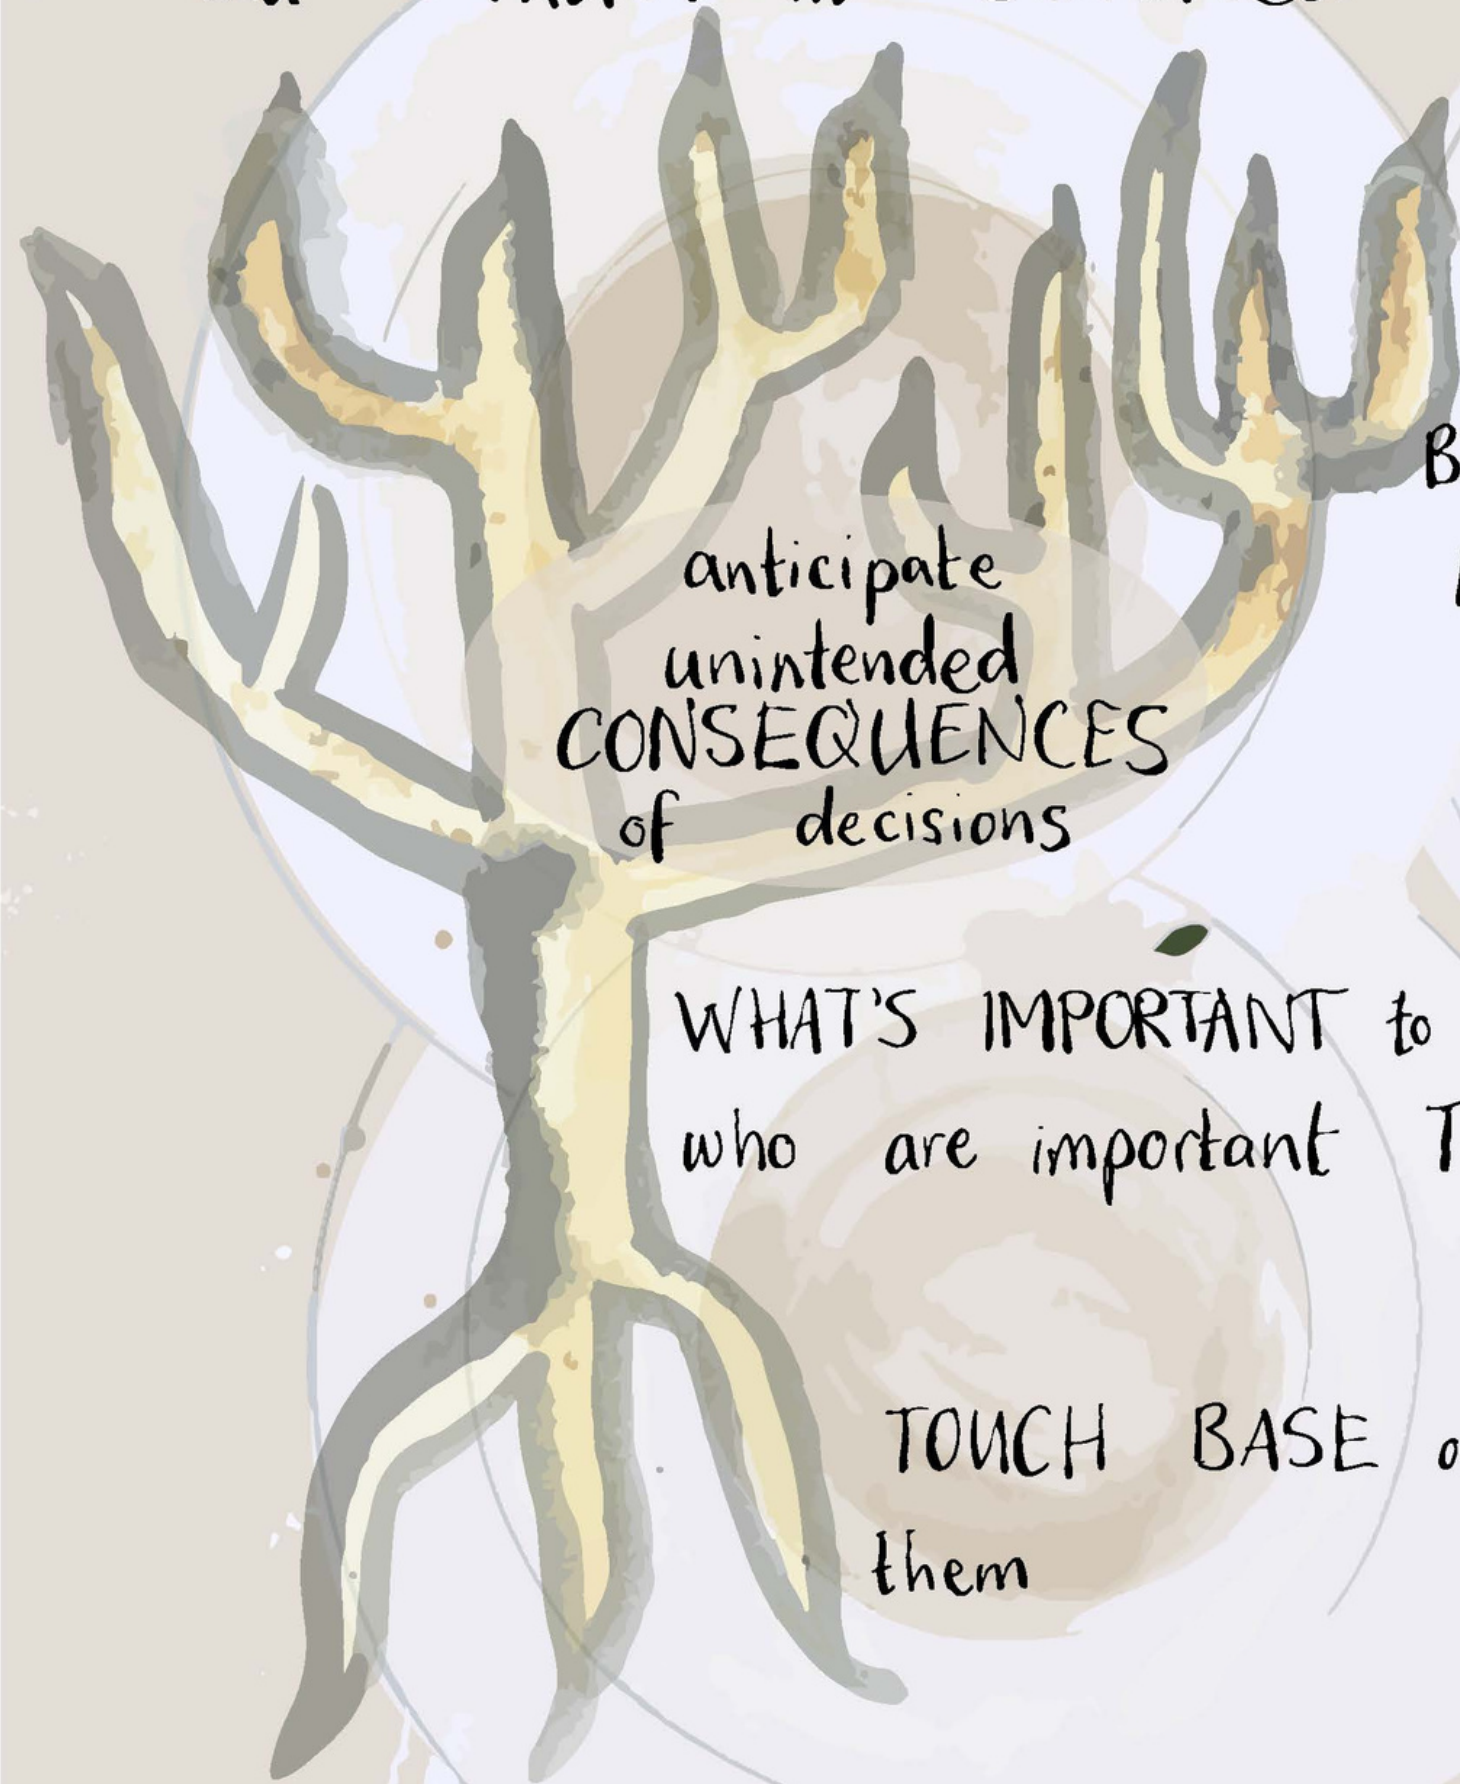 anticipate
unintended
CONSEQUENCES
of decisions
WHAT'S IMPORTANT to
who are important
TOUCH BASE
them